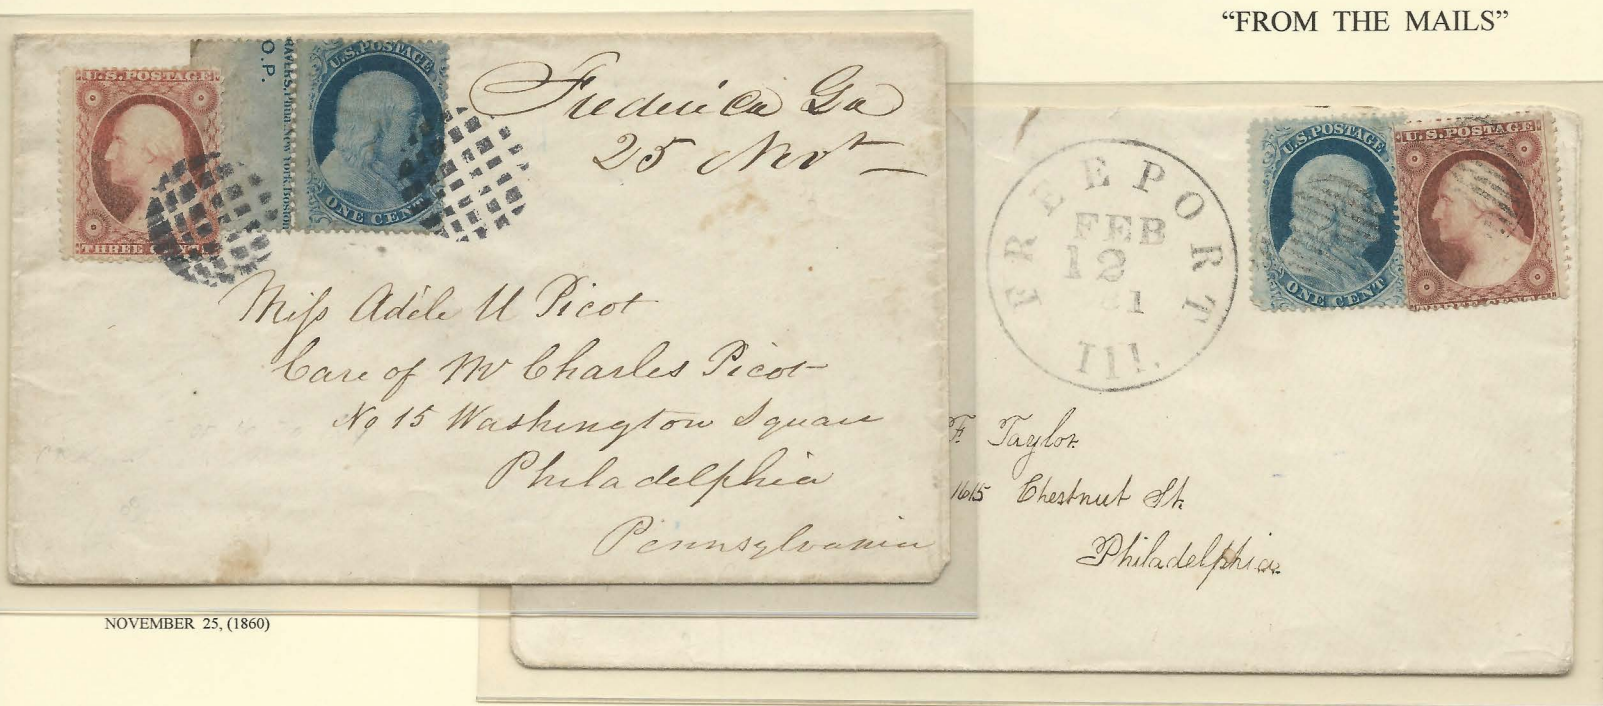 "FROM THE MAILS"
U.S. POSTAGE
THREE CENTS
O.P.
U.S. POSTAGE
ONE CENT
Frederica Ga
25 Novr
Miss Adéle U Picot
Care of Mr Charles Picot
No 15 Washington Square
Philadelphia
Pennsylvania
NOVEMBER 25, (1860)
FREEPORT
FEB
12
61
Ill.
U.S. POSTAGE
ONE CENT
U.S. POSTAGE
THREE CENTS
F. Taylor
1615 Chestnut St.
Philadelphia.